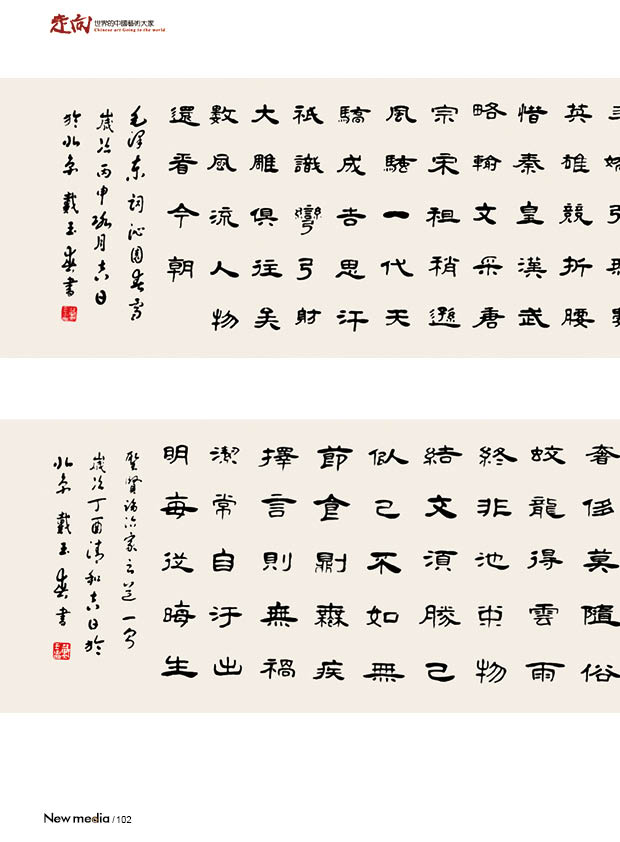 走向世界的中國藝術大家
Chinese art Going to the world
英雄競折腰
惜秦皇漢武
略輸文采唐
宗宋祖稍遜
風騷一代天
驕成吉思汗
祇識彎弓射
大雕俱往矣
數風流人物
還看今朝
毛澤東詞沁園春雪
歲次丙申月吉日
於北京戴玉書
奢侈莫隨俗
蛟龍得雲雨
終非池中物
結交須勝己
似己不如無
節食則無疾
擇言則無禍
潔常自汙出
明每從晦生
聖賢論治家之道一句
歲次丁酉清和吉日於
北京戴玉書
New media / 102